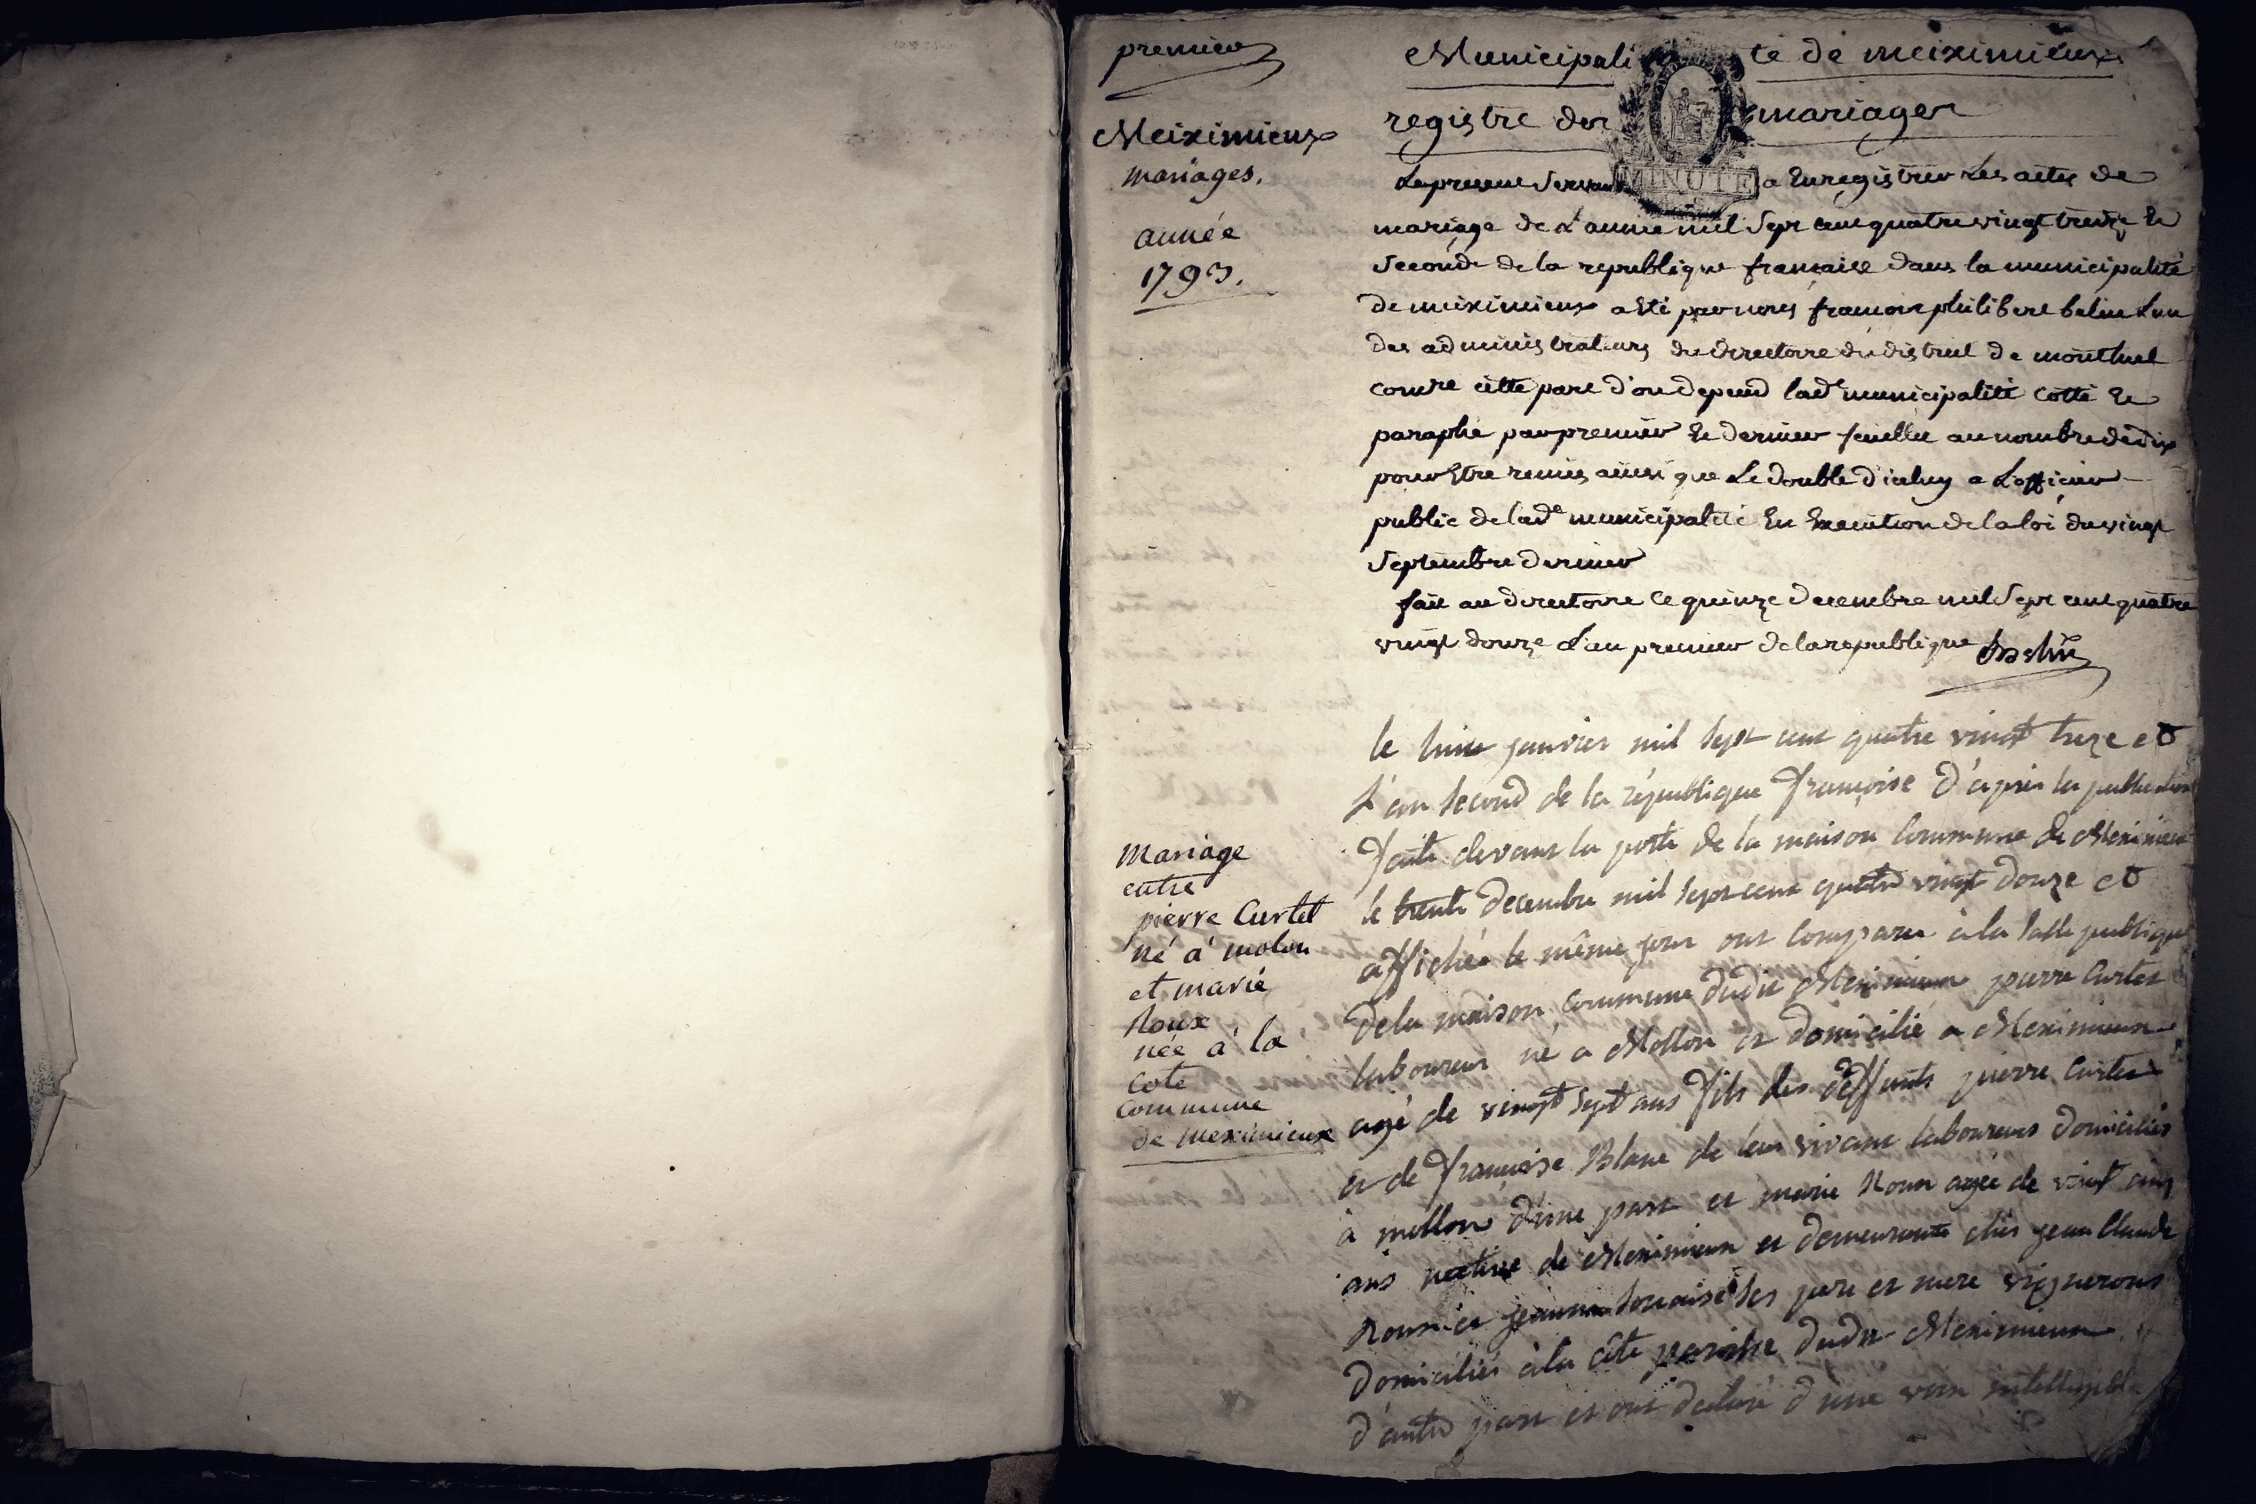 premier
Meiximieux
mariages.
année
1793.
Municipalité de meiximieux
registre des mariages
MINUTE
Le present servant a Enregistrer Les actes de
mariage de L'année mil Sept cent quatre vingt treize Et
Seconde de la republique française dans la municipalité
de meiximieux a Eté par nous françois philibert belin L'un
des administrateurs du directoire du district de montluel
comme cette part d'ou depend lad.e municipalité Cotté Et
paraphé par premier Et dernier feuillet au nombre de dix
pour Etre remis ainsi que Le double d'icelui a L'officier
public de lad.e municipalité En Execution de la loi du vingt
Septembre dernier
fait au directoire Ce quinze decembre mil Sept cent quatre
vingt douze L'an premier de la republique Belin
mariage
entre
pierre Curtet
né à molon
et marie
Roux
née à la
Cote
Commune
de meximieux
le janvier mil sept cent quatre vingt treze et
L'an second de la république françoise d'après la publication
faite devant la porte de la maison commune de Meximieux
le trente decembre mil sept cent quatre vingt douze et
affichée le même jour ont comparu à la salle publique
de la maison commune dudit Meximieux pierre Curtet
laboureur né a Mollon et domicilié a Meximieux
agé de vingt sept ans fils des deffunts pierre Curtet
et de françoise Blanc de leur vivant laboureurs domiciliés
à mollon d'une part et marie Roux agée de vingt cinq
ans native de Meximieux et demeurante chés jean Claude
Roux et jeanne ses pere et mere vignerons
domiciliés à la côte paroisse dudit Meximieux
d'autre part et ont declaré d'une voix intelligible